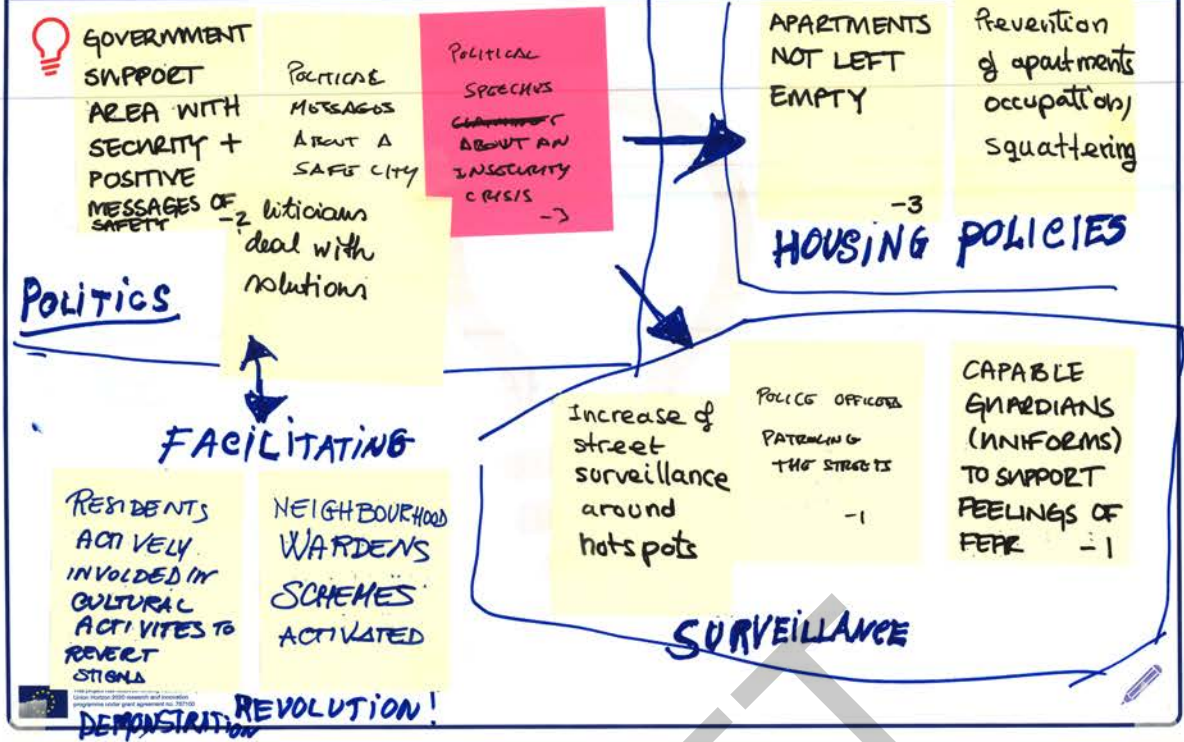 GOVERNMENT
SUPPORT
AREA WITH
SECURITY +
POSITIVE
MESSAGES OF
SAFETY -2
POLITICAL
MESSAGES
ABOUT A
SAFE CITY
POLITICAL
SPEECHES
ABOUT AN
INSECURITY
CRISIS
-3
liticians
deal with
solutions
POLITICS
APARTMENTS
NOT LEFT
EMPTY
-3
Prevention
of apartments
occupation/
squattering
HOUSING POLICIES
FACILITATING
RESIDENTS
ACTIVELY
INVOLDED IN
CULTURAL
ACTIVITES TO
REVERT
STIGMA
NEIGHBOURHOOD
WARDENS
SCHEMES
ACTIVATED
Increase of
street
surveillance
around
hotspots
POLICE OFFICERS
PATROLING
THE STREETS
-1
CAPABLE
GUARDIANS
(UNIFORMS)
TO SUPPORT
FEELINGS OF
FEAR -1
SURVEILLANCE
Union Horizon 2020 research and innovation
programme under grant agreement no. 787100
DEMONSTRATION REVOLUTION!